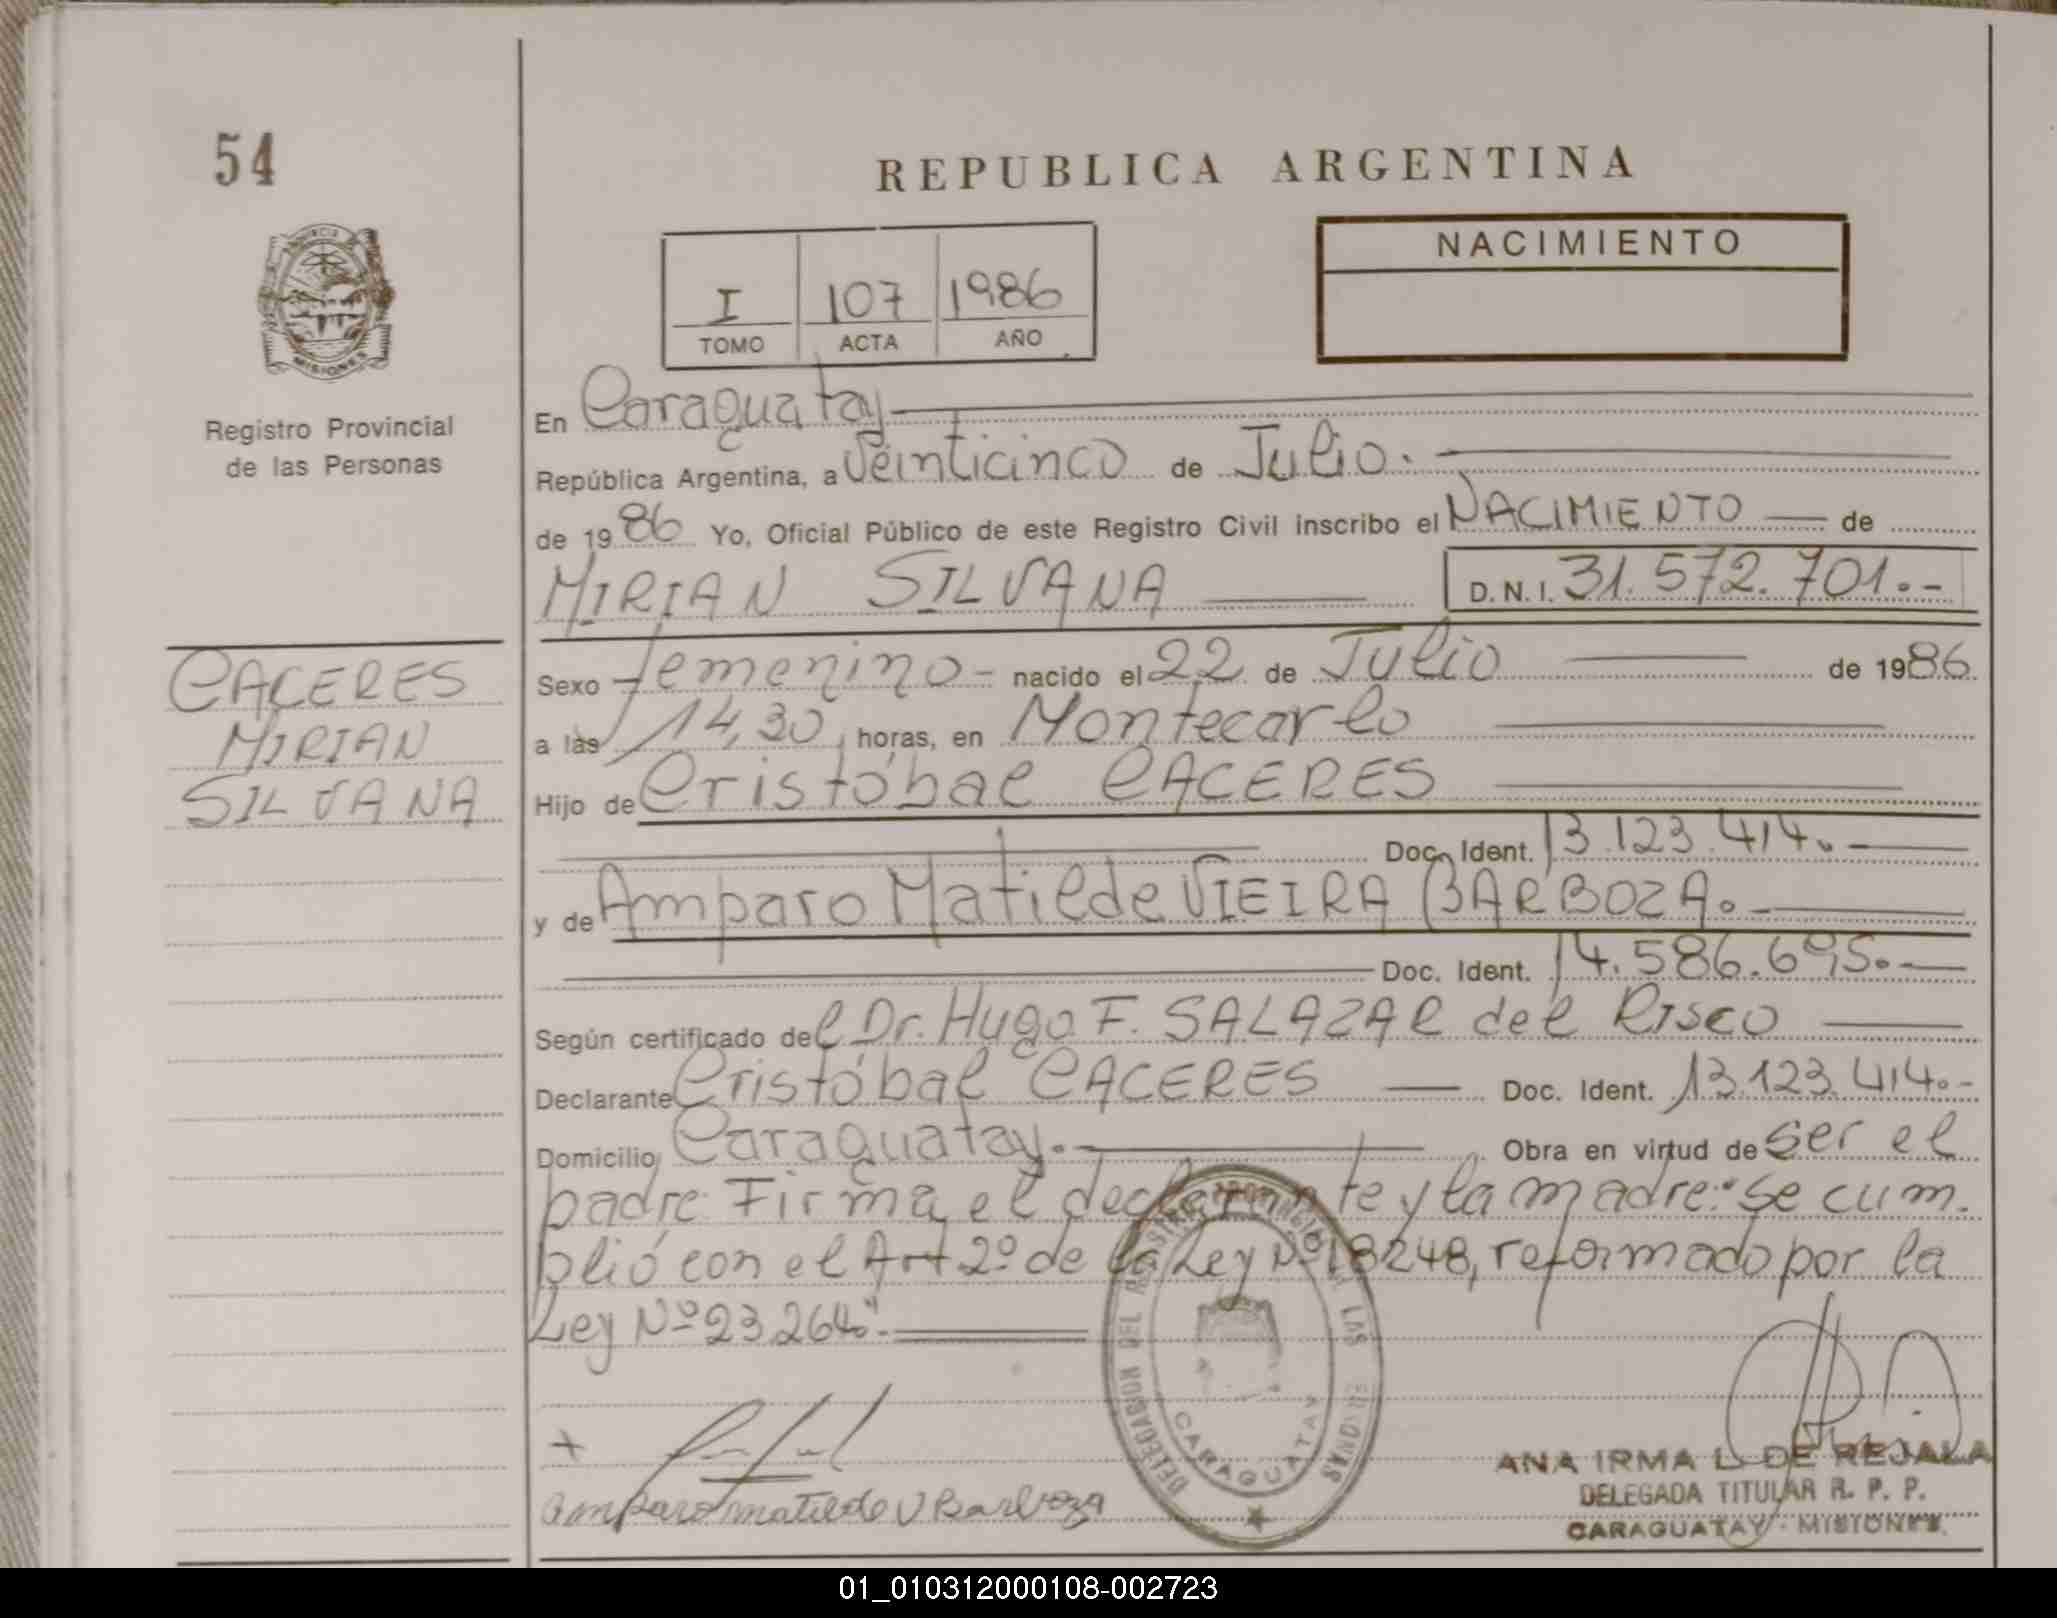 54
REPUBLICA ARGENTINA
PROVINCIA
MISIONES
NACIMIENTO
I 107 1986
TOMO ACTA AÑO
Registro Provincial
de las Personas
CACERES
MIRIAN
SILVANA
En Caraguatay
República Argentina, a Veinticinco de Julio.
de 1986 Yo, Oficial Público de este Registro Civil inscribo el NACIMIENTO de
MIRIAN SILVANA D.N.I. 31.572.701.-
Sexo femenino- nacido el 22 de Julio de 1986.
a las 14,30 horas, en Montecarlo
Hijo de Cristóbal CACERES
Doc. Ident. 13.123.414.-
y de Amparo Matilde VIEIRA BARBOZA.-
Doc. Ident. 14.586.695.-
Según certificado del Dr. Hugo F. SALAZAR del Risco
Declarante Cristóbal CACERES Doc. Ident. 13.123.414.-
Domicilio Caraguatay.- Obra en virtud de ser el
padre. Firma el declarante y la madre: "Se cum.
plió con el Art 2º de la Ley Nº 18248, reformado por la
Ley Nº 23.264".
Amparo matilde V Barboza
DELEGACION DEL LAS PERSONAS
CARAGUATAY
ANA IRMA L. DE REJALA
DELEGADA TITULAR R. P. P.
CARAGUATAY - MISIONES
01_010312000108-002723